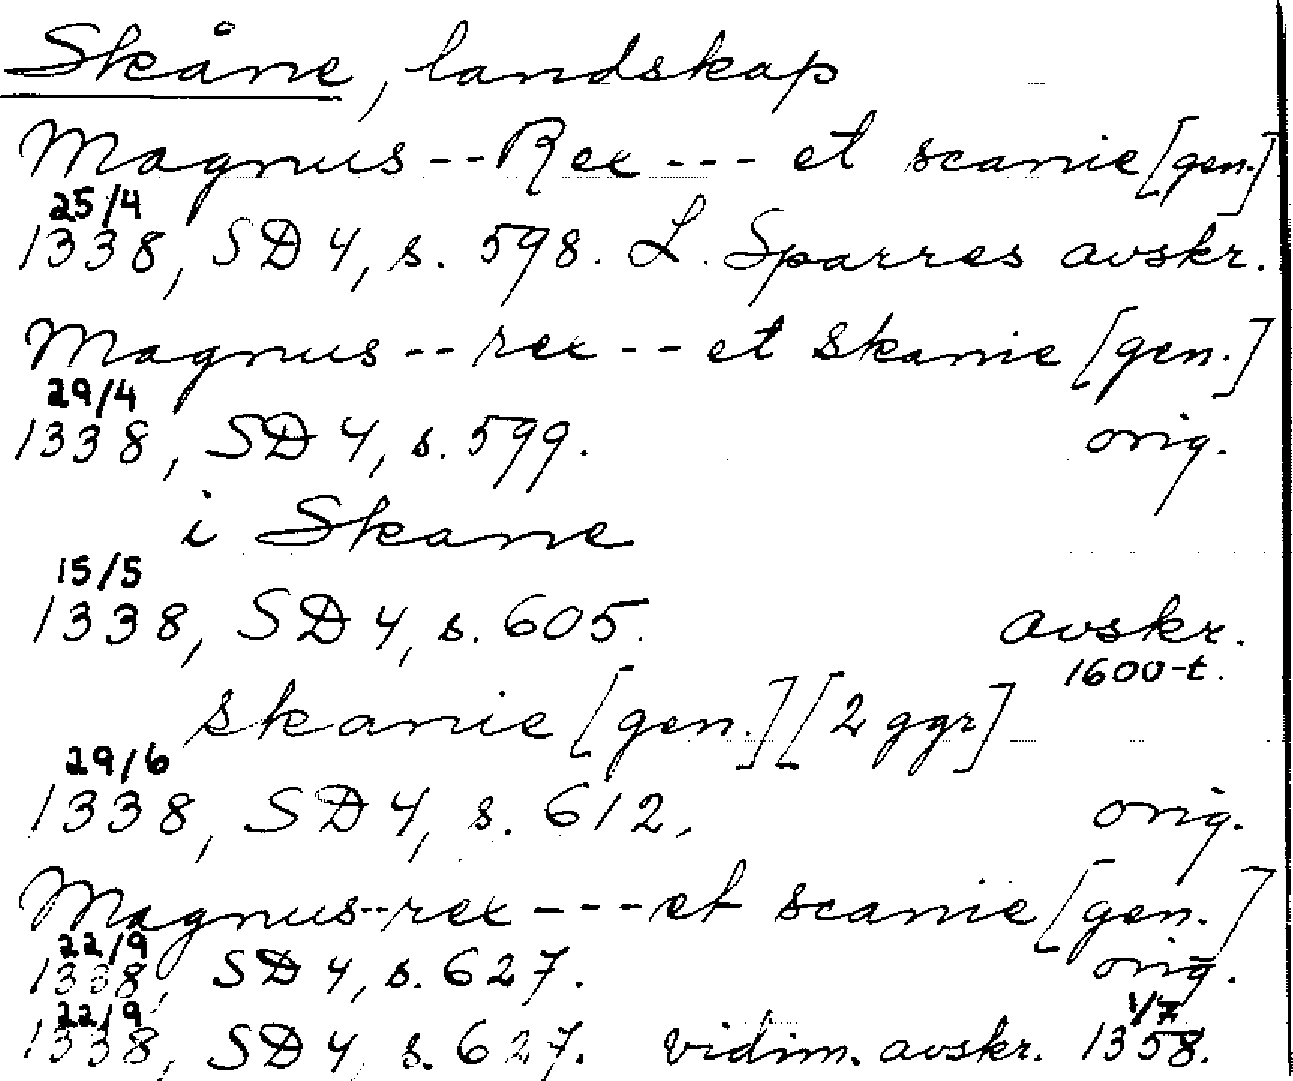 Skåne, landskap
Magnus -- Rex --- et scanie [gen.]
25/4
1338, SD 4, s. 598. L. Sparres avskr.
Magnus -- rex -- et skanie [gen.]
29/4
1338, SD 4, s. 599. orig.
i Skane
15/5
1338, SD 4, s. 605. avskr.
1600-t.
skanie [gen.] [2 ggr]
29/6
1338, SD 4, s. 612, orig.
Magnus -- rex --- et scanie [gen.]
22/9
1338, SD 4, s. 627. orig.
22/9 1/7
1338, SD 4, s. 627. vidim. avskr. 1358.